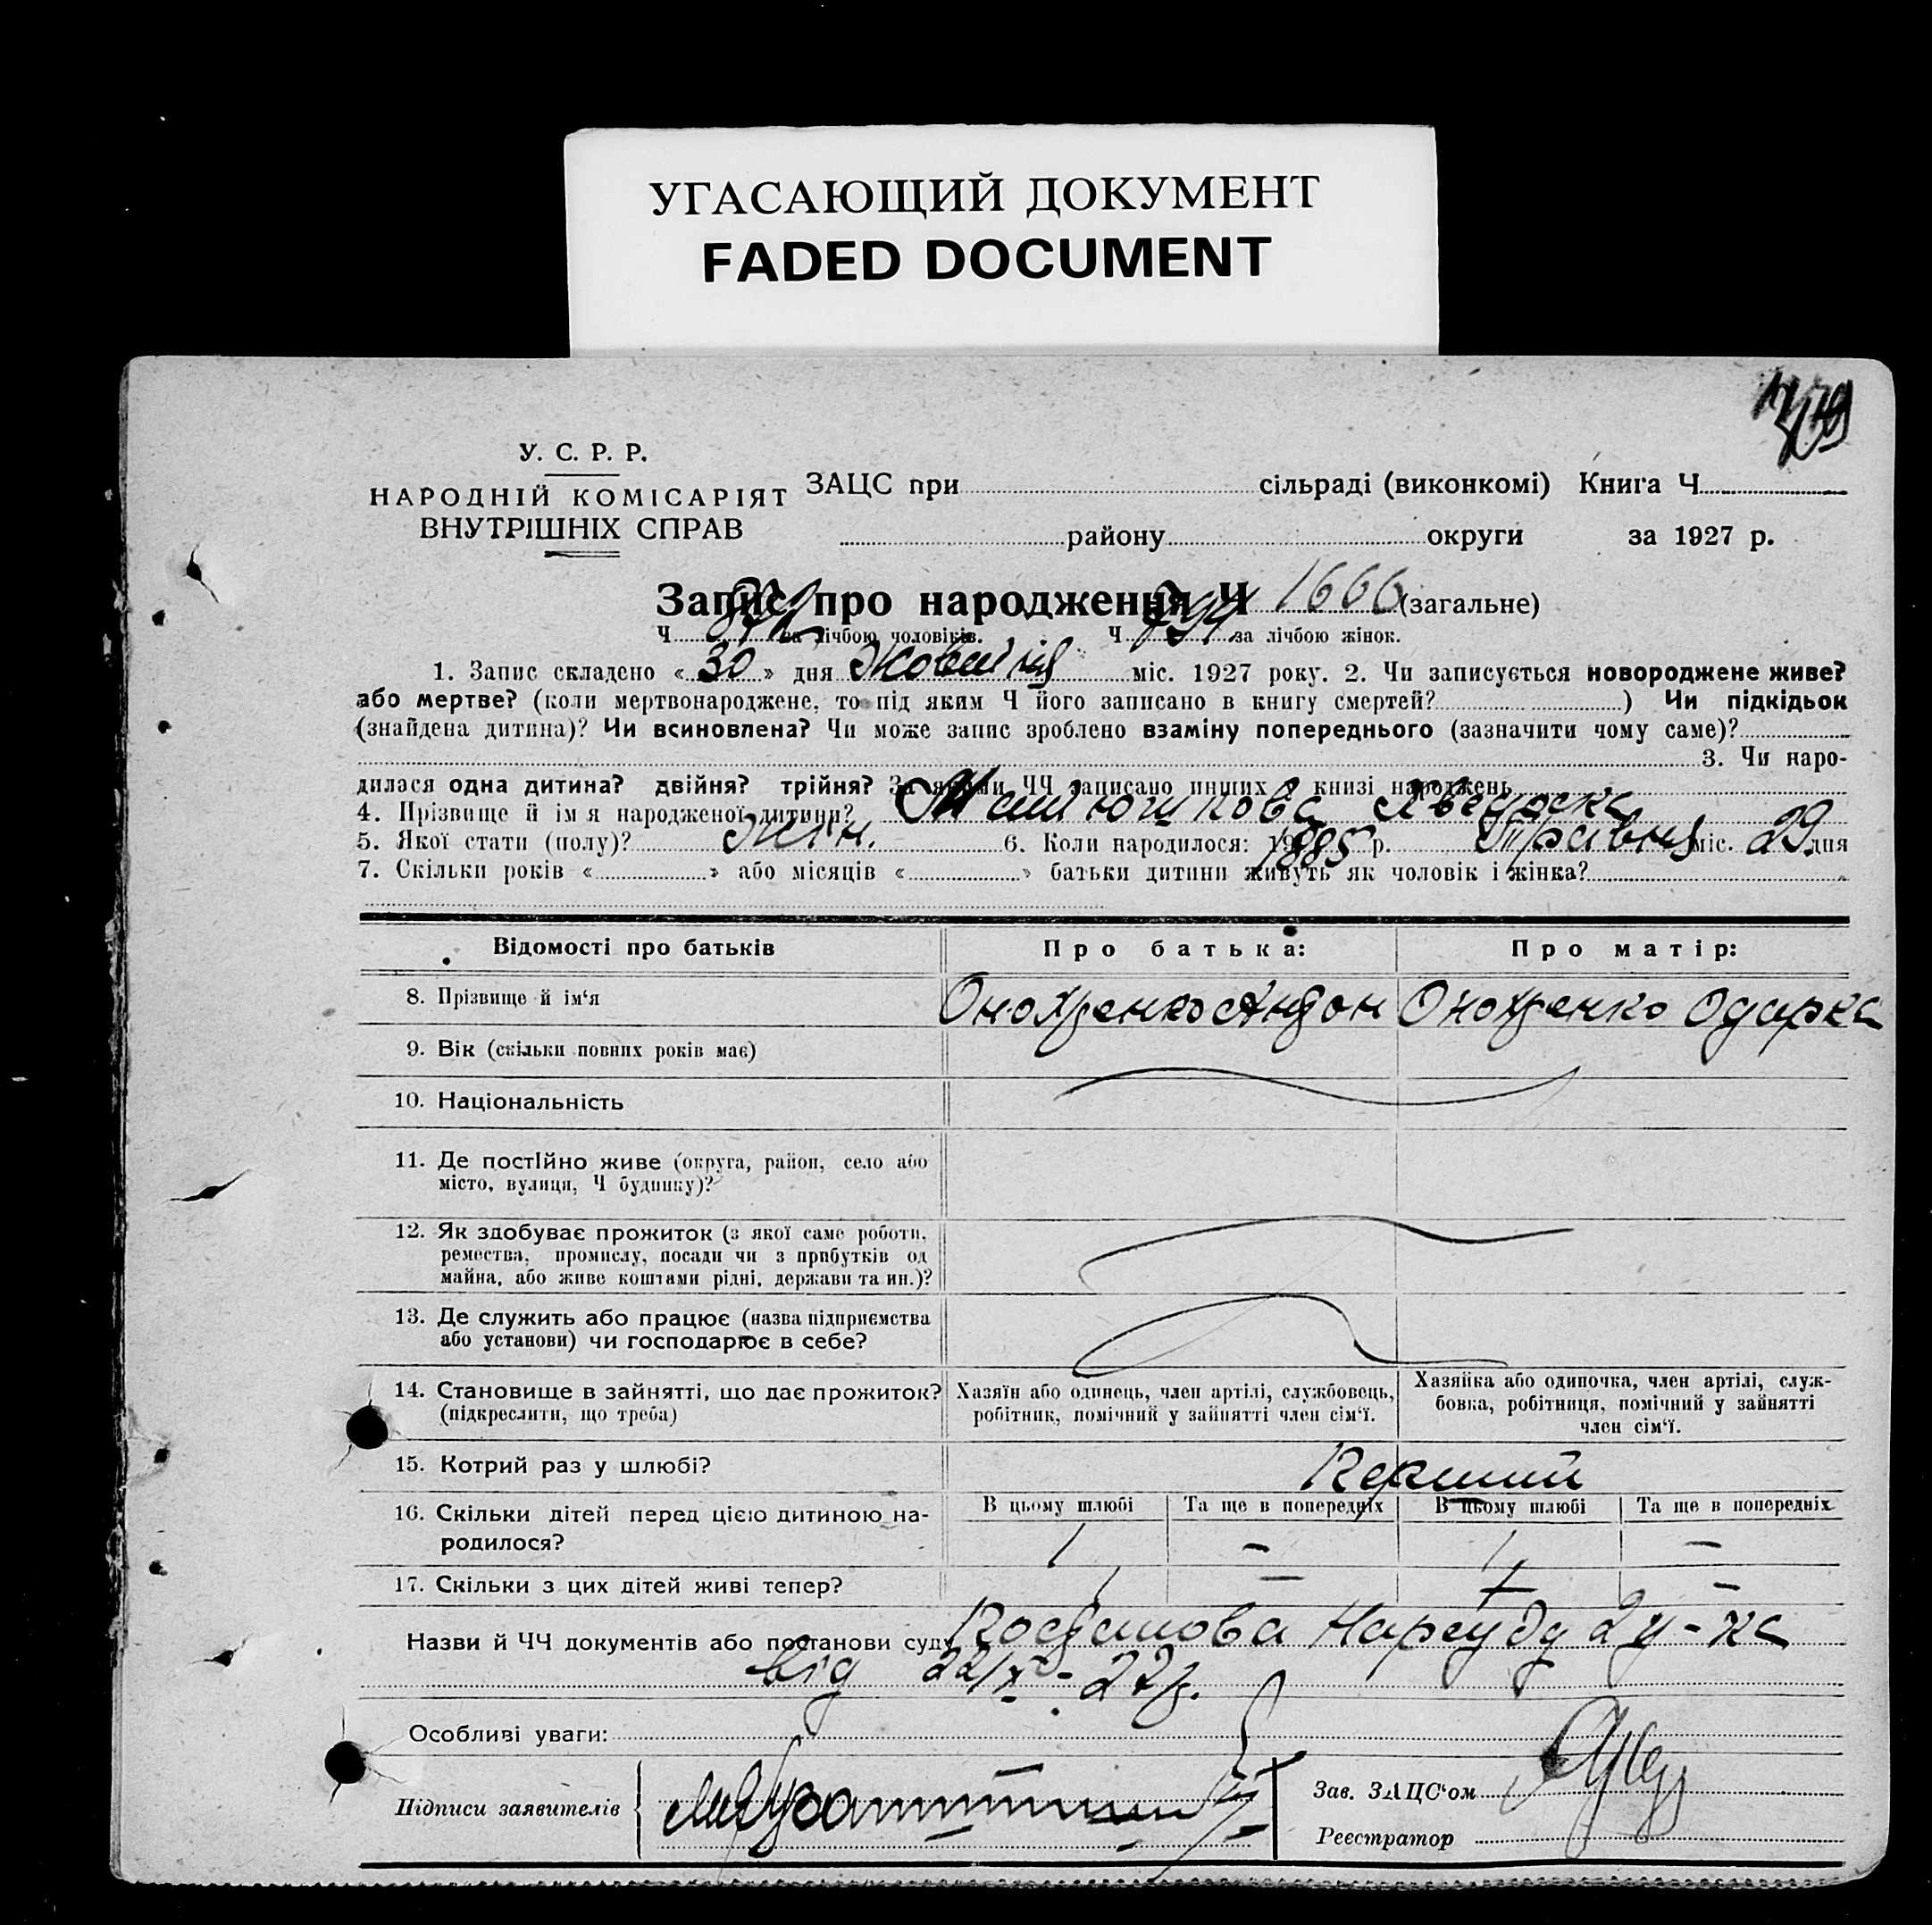 УГАСАЮЩИЙ ДОКУМЕНТ
FADED DOCUMENT
У. С. Р. Р.
НАРОДНІЙ КОМІСАРІЯТ
ВНУТРІШНІХ СПРАВ
ЗАЦС при сільраді (виконкомі) Книга Ч.
району округи за 1927 р.
Запис про народження Ч 1666 (загальне)
Ч. 872 за лічбою чоловіків. Ч. 794 за лічбою жінок.
1. Запис складено « 30 » дня Жовтня міс. 1927 року. 2. Чи записується новороджене живе?
або мертве? (коли мертвонароджене, то під яким Ч його записано в книгу смертей? ) Чи підкідьок
(знайдена дитина)? Чи всиновлена? Чи може запис зроблено взаміну попереднього (зазначити чому саме)?
3. Чи наро-
дилася одна дитина? двійня? трійня? За якими ЧЧ записано инших в книзі народжень
4. Прізвище й ім'я народженої дитини? Матюшкова Хведоска
5. Якої стати (полу)? Жін. 6. Коли народилося: 1885 р. Травня міс. 29 дня
7. Скільки років « » або місяців « » батьки дитини живуть як чоловік і жінка?
Відомості про батьків Про батька: Про матір:
8. Прізвище й ім'я Онопренко Антон Онопренко Одарка
9. Вік (скільки повних років має)
10. Національність
11. Де постійно живе (округа, район, село або
місто, вулиця, Ч будинку)?
12. Як здобуває прожиток (з якої саме роботи,
ремества, промислу, посади чи з прибутків од
майна, або живе коштами рідні, держави та ин.)?
13. Де служить або працює (назва підприємства
або установи) чи господарює в себе?
14. Становище в зайнятті, що дає прожиток?
(підкреслити, що треба)
Хазяїн або одинець, член артілі, службовець,
робітник, помічний у зайнятті член сім'ї.
Хазяйка або одиночка, член артілі, служ-
бовка, робітниця, помічний у зайнятті
член сім'ї.
15. Котрий раз у шлюбі? Перший
16. Скільки дітей перед цією дитиною на-
родилося?
В цьому шлюбі Та ще в попередніх В цьому шлюбі Та ще в попередніх
1 – 1 –
17. Скільки з цих дітей живі тепер? 1 – 1 –
Назви й ЧЧ документів або постанови суду Постанова Нарсуду 2 у-ка
від 22/X – 27 р.
Особливі уваги:
Підписи заявителів
Зав. ЗАЦС'ом
Реєстратор